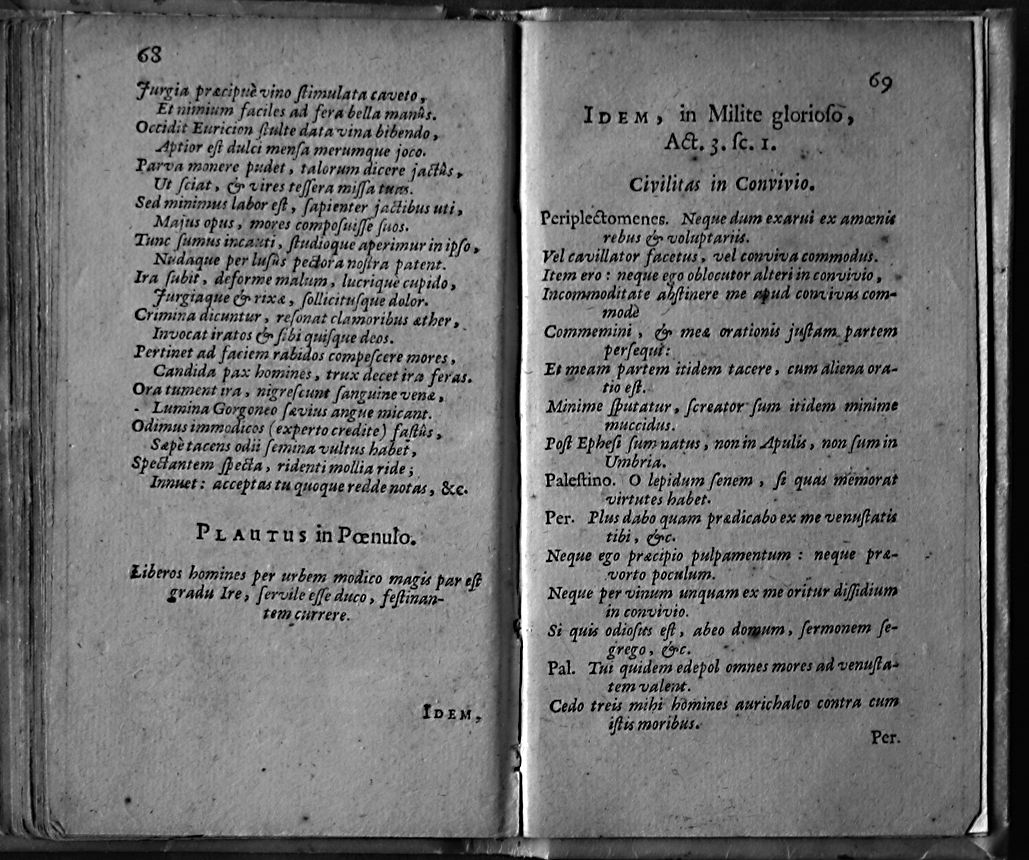 68
Jurgia præcipuè vino ſtimulata caveto,
Et nimium faciles ad fera bella manûs.
Occidit Euricion ſtulte data vina bibendo,
Aptior eſt dulci menſa merumque joco.
Parva monere pudet, talorum dicere jactûs,
Ut ſciat, & vires teſſera miſſa tuas.
Sed minimus labor eſt, ſapienter jactibus uti,
Majus opus, mores compoſuiſſe ſuos.
Tunc ſumus incauti, ſtudioque aperimur in ipſo,
Nudaque per luſûs pectora noſtra patent.
Ira ſubit, deforme malum, lucrique cupido,
Jurgiaque & rixæ, ſollicituſque dolor.
Crimina dicuntur, reſonat clamoribus æther,
Invocat iratos & ſibi quiſque deos.
Pertinet ad faciem rabidos compeſcere mores,
Candida pax homines, trux decet ira feras.
Ora tument ira, nigreſcunt ſanguine venæ,
Lumina Gorgoneo ſævius angue micant.
Odimus immodicos (experto credite) faſtûs,
Sæpè tacens odii ſemina vultus habet,
Spectantem ſpecta, ridenti mollia ride;
Innuet: acceptas tu quoque redde notas, &c.
PLAUTUS in Pœnulo.
Liberos homines per urbem modico magis par eſt
gradu Ire, ſervile eſſe duco, feſtinan-
tem currere.
IDEM,
69
IDEM, in Milite glorioſo,
Act. 3. ſc. 1.
Civilitas in Convivio.
Periplectomenes. Neque dum exarui ex amœnis
rebus & voluptariis.
Vel cavillator facetus, vel conviva commodus.
Item ero: neque ego oblocutor alteri in convivio,
Incommoditate abſtinere me apud convivas com-
modè
Commemini, & meæ orationis juſtam partem
perſequi:
Et meam partem itidem tacere, cum aliena ora-
tio eſt.
Minime ſputatur, ſcreator ſum itidem minime
muccidus.
Poſt Epheſi ſum natus, non in Apulis, non ſum in
Umbria.
Paleſtino. O lepidum ſenem, ſi quas memorat
virtutes habet.
Per. Plus dabo quam prædicabo ex me venuſtatis
tibi, &c.
Neque ego præcipio pulpamentum: neque præ-
vorto poculum.
Neque per vinum unquam ex me oritur diſſidium
in convivio.
Si quis odioſus eſt, abeo domum, ſermonem ſe-
grego, &c.
Pal. Tui quidem edepol omnes mores ad venuſta-
tem valent.
Cedo treis mihi homines aurichalco contra cum
iſtis moribus.
Per.